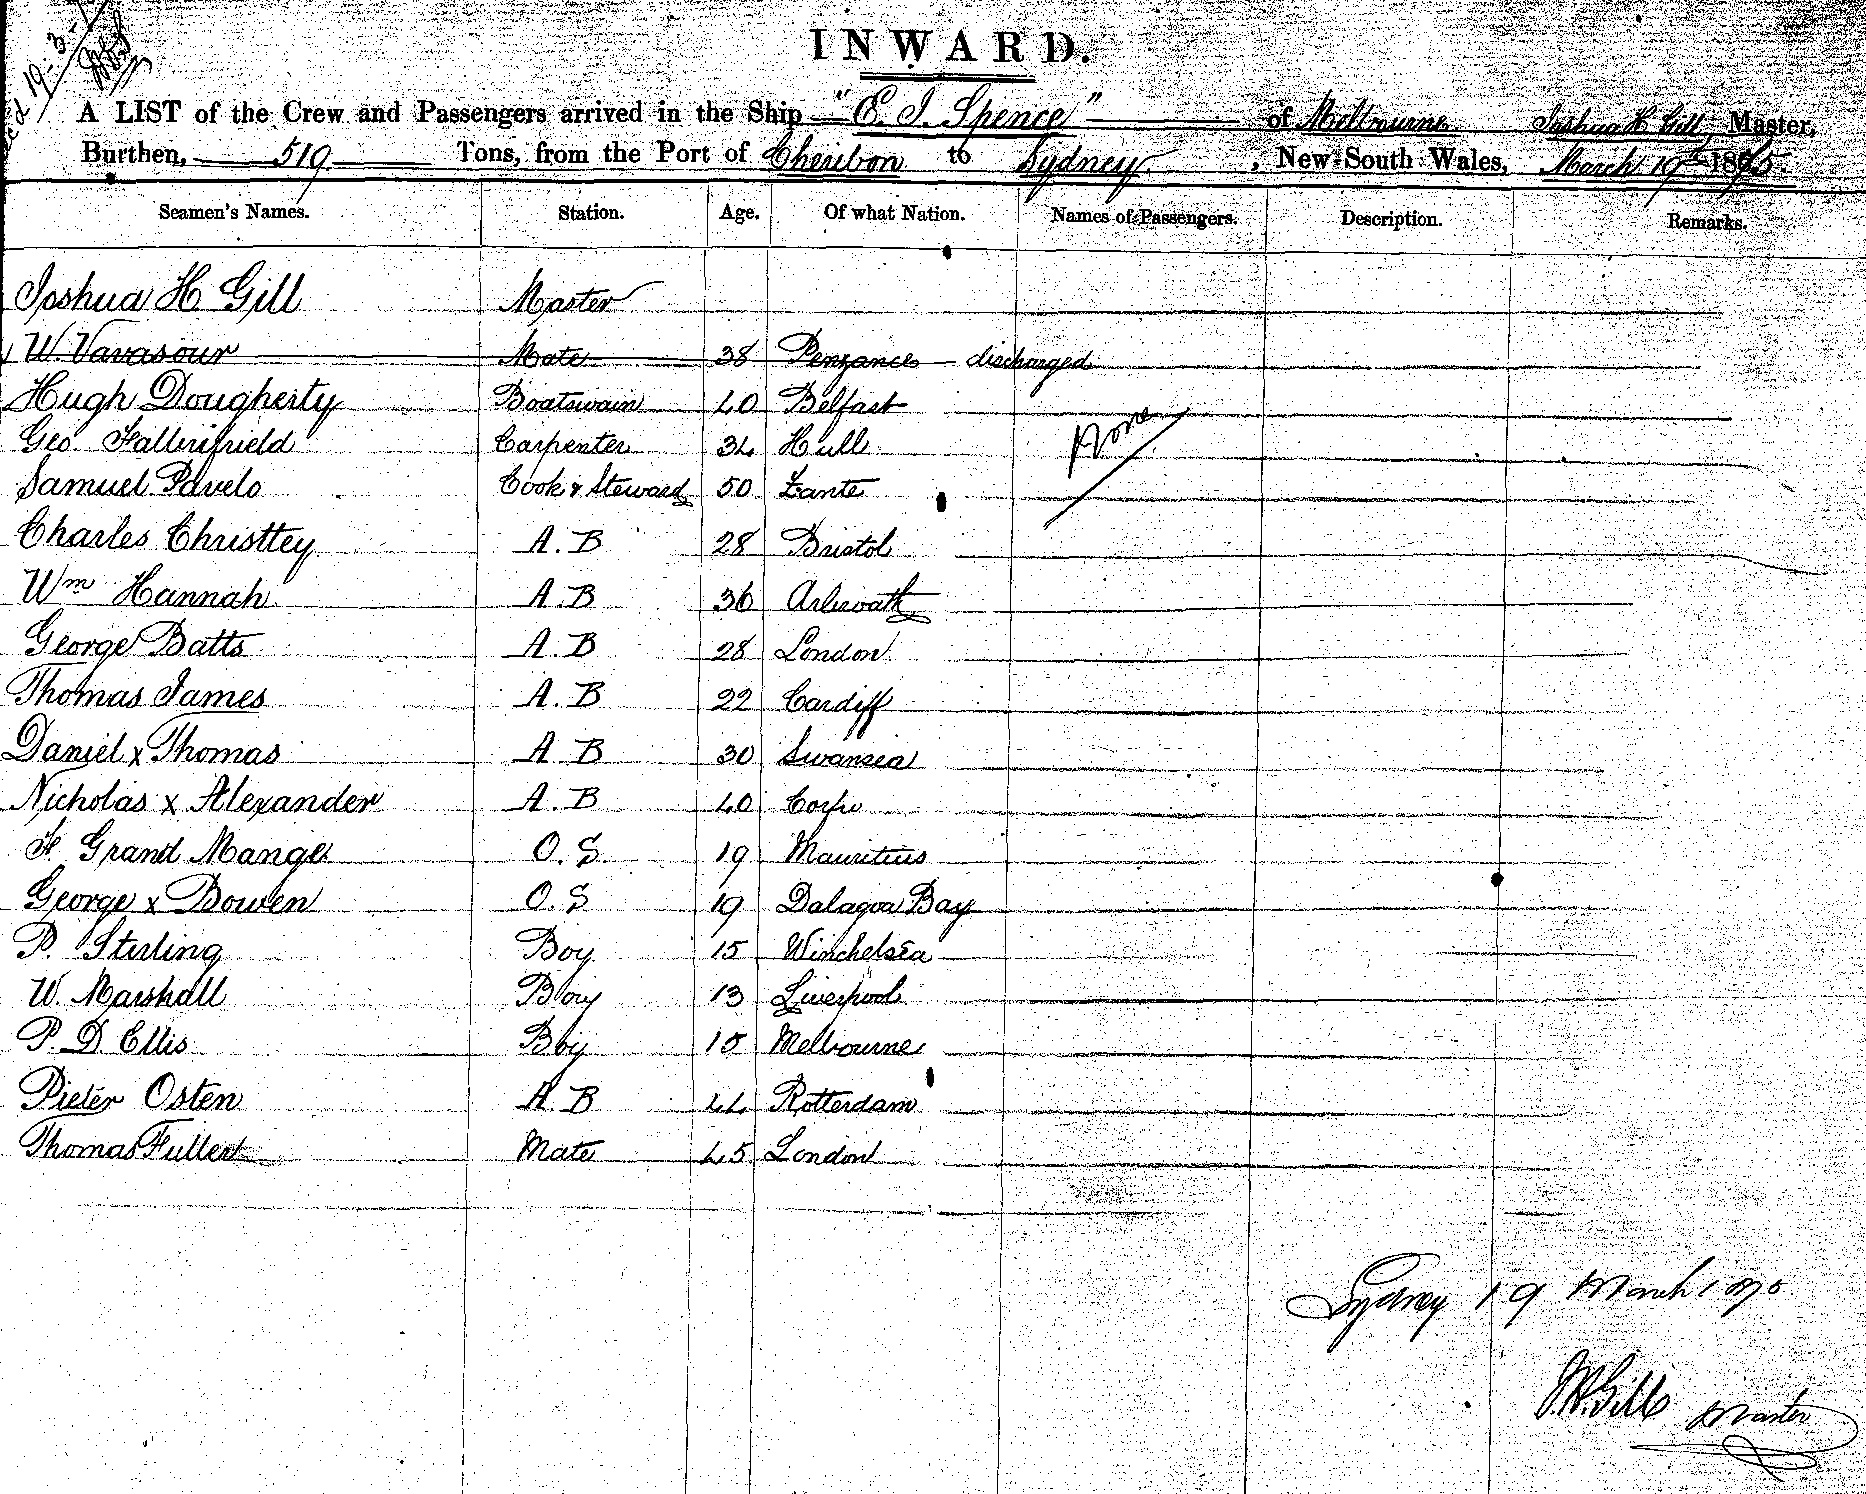 19-3-
INWARD.
A LIST of the Crew and Passengers arrived in the Ship "E. J. Spence" of Melbourne Joshua H Gill, Master,
Burthen, 519 Tons, from the Port of Cheribon to Sydney, New South Wales, March 19th 1875.
Seamen's Names. Station. Age. Of what Nation. Names of Passengers. Description. Remarks.
Joshua H Gill Master
W. Vavasour Mate 38 Penzance discharged
Hugh Dougherty Boatswain 40 Belfast
Geo. Carpenter 34 Hull None
Samuel Pavelo Cook & Steward 50 Zante
Charles Christtey A.B 28 Bristol
Wm Hannah A.B 36 Arbroath
George Batts A.B 28 London
Thomas James A.B 22 Cardiff
Daniel x Thomas A B 30 Swansea
Nicholas x Alexander A.B 40 Corfu
F. Grand Mange O.S. 19 Mauritius
George x Bowen O.S 19 Dalagoa Bay
P. Stirling Boy 15 Winchelsea
W. Marshall Boy 13 Liverpool
P. D. Ellis Boy 15 Melbourne
Pieter Osten A.B 44 Rotterdam
Thomas Fullert Mate 45 London
Sydney 19 March 1875
J.H. Gill Master